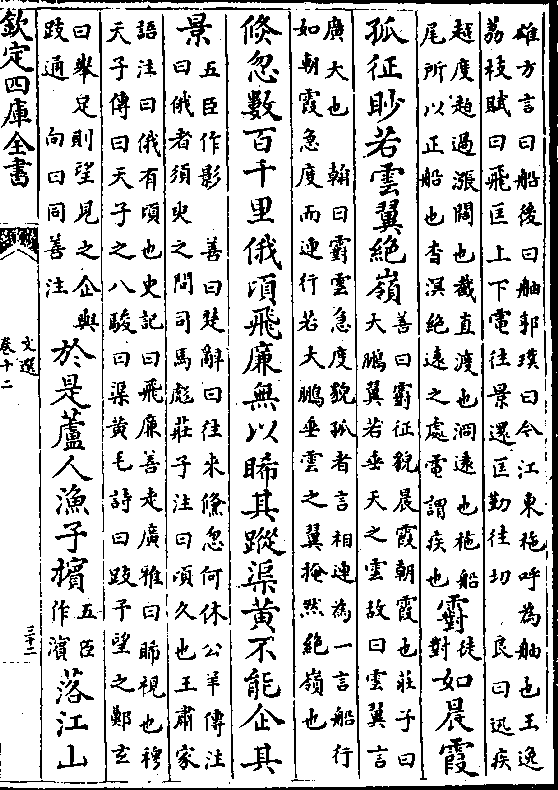 雄方言曰船後曰舳郭璞曰今江東柂呼為舳也王逸
荔枝賦曰飛匡上下電往景還匡勤往切 良曰迅疾
趍度趍過漲闊也截直渡也洞遠也柂船
尾所以正船也杳溟絕遠之處電謂疾也
䨴
徒
對
如晨霞
孤征眇若雲翼絕嶺
善曰䨴征貌晨霞朝霞也莊子曰
大鵬翼若垂天之雲故曰雲翼言
廣大也 翰曰䨴雲急度貌孤者言相連為一言船行
如朝霞急度而連行若大鵬垂雲之翼掩然絕嶺也
倐忽數百千里俄頃飛廉無以睎其蹤渠黄不能企其
景
五臣作影 善曰楚辭曰往來倐忽何休公羊傳注
曰俄者須臾之間司馬彪莊子注曰頃久也王肅家
語注曰俄有頃也史記曰飛廉善走廣雅曰睎視也穆
天子傳曰天子之八駿曰渠黄毛詩曰跂予望之鄭玄
曰舉足則望見之企與
跂通 向曰同善注
於是蘆人漁子擯
五臣
作濱
落江山
欽定四庫全書
文選
卷十二
三十二